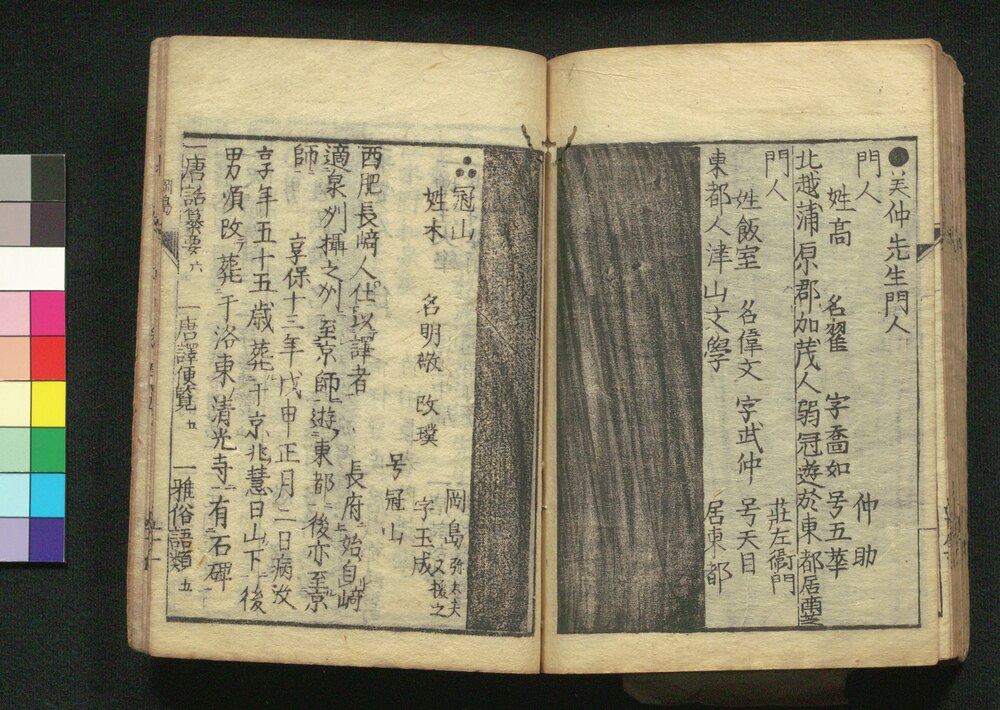 ●芙仲先生門人
門人 仲助
姓髙 名翟 字喬如 号五華
北越蒲原郡加茂人弱冠遊於東都居
門人 莊左衞門
姓飯室 名偉文 字武仲 号天目
東都人津山文學 居東都
冠山 岡島 弥太夫 又援之
姓木 名明敬 改璞 字玉成
号冠山
西肥長﨑人仕以譯者 長府始自﨑
適泉州攝之州至京師遊東都後亦至京
師 享保十三年戊申正月二日病沒
享年五十五歳葬于京兆慧日山下後
男順改葬于洛東清光寺有石碑
一唐話纂要六 一唐譯便覧五 一雅俗語類五
岡島